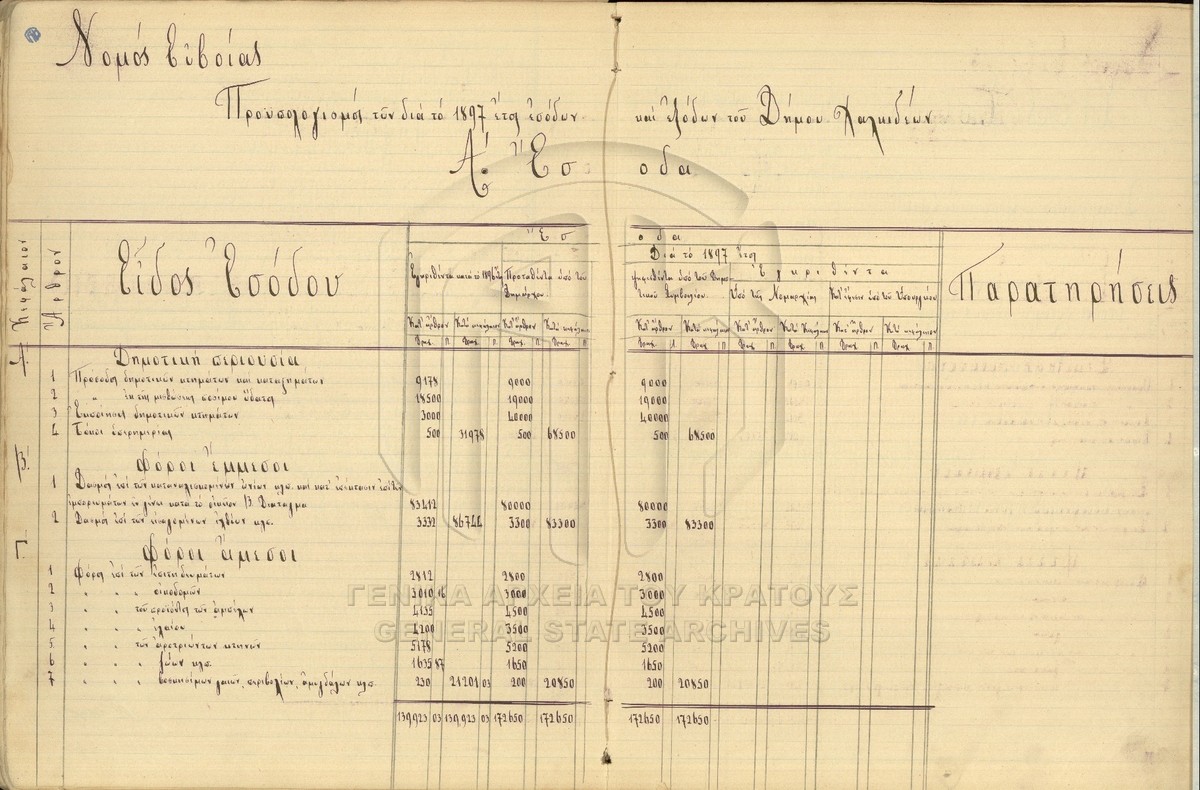 Νομός Εὐβοίας
Προϋπολογισμός τῶν διὰ τὸ 1897 ἔτος ἐσόδων καὶ ἐξόδων τοῦ Δήμου Χαλκιδέων
Α. Ἔσοδα
Κεφάλαιον Ἄρθρον Εἶδος Ἐσόδου Ἔσοδα Παρατηρήσεις
Διὰ τὸ 1897 ἔτος
Ἐγκριθέντα κατὰ τὸ 1896 Προταθέντα ὑπὸ τοῦ Δημάρχου ψηφισθέντα ὑπὸ τοῦ Δημοτικοῦ Συμβουλίου Ἐγκριθέντα
Ὑπὸ τῆς Νομαρχίας ὑπὸ τοῦ Ὑπουργείου
Κατ' ἄρθρον Κατὰ κεφάλαιον Κατ' ἄρθρον Κατὰ κεφάλαιον Κατ' ἄρθρον Κατὰ κεφάλαιον Κατ' ἄρθρον Κατὰ κεφάλαιον Κατ' ἄρθρον Κατὰ κεφάλαιον
Δραχ. Λ Δραχ. Λ Δραχ. Λ Δραχ. Λ Δραχ. Λ Δραχ. Λ Δραχ. Λ Δραχ. Λ Δραχ. Λ Δραχ. Λ
Α. Δημοτικὴ περιουσία
1 Πρόσοδος δημοτικῶν κτημάτων καὶ καταστημάτων 9178 9000 9000
2 " ἐκ τῆς μισθώσεως ποσίμου ὕδατος 18500 19000 19000
3 Ἐκποίησις δημοτικῶν κτημάτων 3000 40000 40000
4 Τόκοι ὑπερημερίας 500 31978 500 68500 500 68500
Β. Φόροι ἔμμεσοι
1 Δασμὸς ἐπὶ τῶν καταναλισκομένων ὠνίων κλπ. καὶ κατ'
ἐμπορευμάτων κατὰ τὸ Β. Διάταγμα 83412 80000 80000
2 Δασμὸς ἐπὶ τῶν ἰχθύων κλπ. 3332 86744 3300 83300 3300 83300
Γ. Φόροι ἄμεσοι
1 Φόρος ἐπὶ τῶν ἐπιτηδευμάτων 2812 2800 2800
2 " " " οἰκοδομῶν 3010 16 3000 3000
3 " " τοῦ προϊόντος τῶν ἀμπέλων 4135 4500 4500
4 " " " ἐλαίου 4200 3500 3500
5 " " τῶν ἀροτριώντων κτηνῶν 5178 5200 5200
6 " " " ζώων κλπ. 1635 87 1650 1650
7 " " " περιβολίων, ἀμυγδάλων κλπ. 230 21201 03 200 20850 200 20850
139,923 03 139,923 03 172650 172650 172650 172650
ΓΕΝΙΚΑ ΑΡΧΕΙΑ ΤΟΥ ΚΡΑΤΟΥΣ
GENERAL STATE ARCHIVES